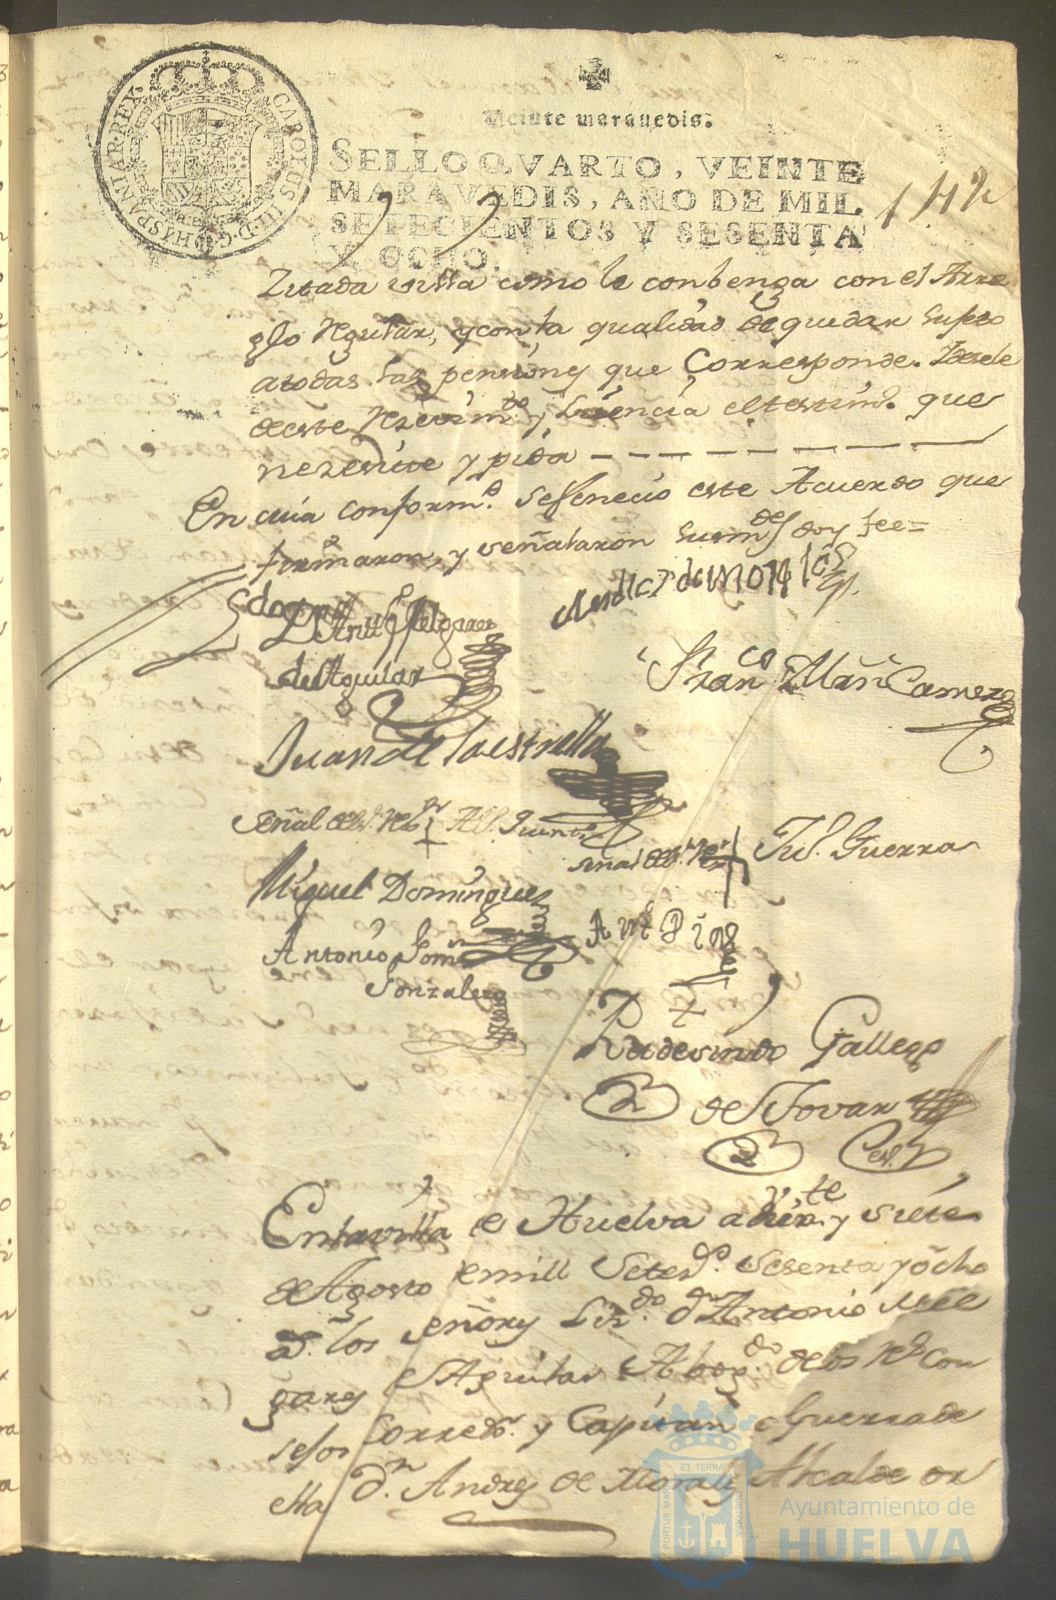 CAROLUS III D G HISPANIAR REX
Veinte maravedis.
SELLO QVARTO, VEINTE
MARAVEDIS, AÑO DE MIL
SETECIENTOS Y SESENTA
Y OCHO.
142
Zitada villa como le conbenga con el Arre
glo Regular, y con la qualidad de quedar sujeto
a todas las pensiones que Corresponde.
de este y Lizencia el testim.º que
nezesite y pida
En cuia conform.d se feneció este Acuerdo que
firmaron, y señalaron sus m.des doy fee=
Ldo Dn Antt.º Melgarez
de Aguilar
Andres de Morales
Fran.co Mrñ Camero
Juan de la estrella
Señal del Sr. R.or
señal del Sr.
Jul. Guerra
Miguel Domingues
Antonio Gom
Gonzales
Ant Dias
Rudesindo Gallego
de Tovar
En la villa de Huelva a veinte y siete
de Agosto de mill Setez.os Sesenta y ocho
a.s los señores Liz.do dn Antonio Mel
garez de Aguilar Abog.do de los R.s Con
sejos Corred.r y Capitan a Guerra de
ella d.n Andres de Morales Alcalde or
PORTUS MARIS ET TERRAE CUSTODIA
Ayuntamiento de
HUELVA